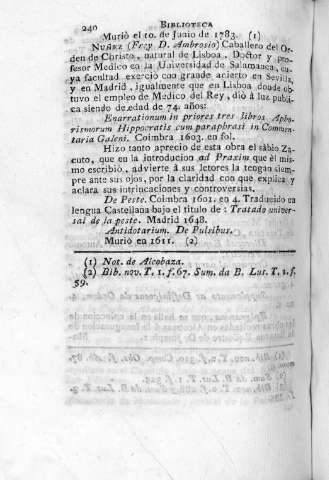 240 BIBLIOTECA
Murió el 10. de Junio de 1783. (1)
NUÑEZ (Frey D. Ambrosio) Caballero del Or-
den de Christo, natural de Lisboa, Doctor y pro-
fesor Medico en la Universidad de Salamanca, cu-
ya facultad exerció con grande acierto en Sevilla,
y en Madrid, igualmente que en Lisboa donde ob-
tuvo el empleo de Medico del Rey, dió á luz públi-
ca siendo de edad de 74. años:
Enarrationum in priores tres libros Apho-
rismorum Hippocratis cum paraphrasi in Commen-
taria Galeni. Coimbra 1603. en fol.
Hizo tanto aprecio de esta obra el sábio Za-
cuto, que en la introducion ad Praxim que él mis-
mo escribió, advierte á sus letores la tengan siem-
pre ante sus ojos, por la claridad con que explica y
aclara sus intrincaciones y controversias.
De Peste. Coimbra 1601. en 4. Traducido en
lengua Castellana bajo el titulo de: Tratado univer-
sal de la peste. Madrid 1648.
Antidotarium. De Pulsibus.
Murió en 1611. (2)
(1) Not. de Alcobaza.
(2) Bib. nov. T. 1. f. 67. Sum. da B. Lus. T. 1. f.
59.